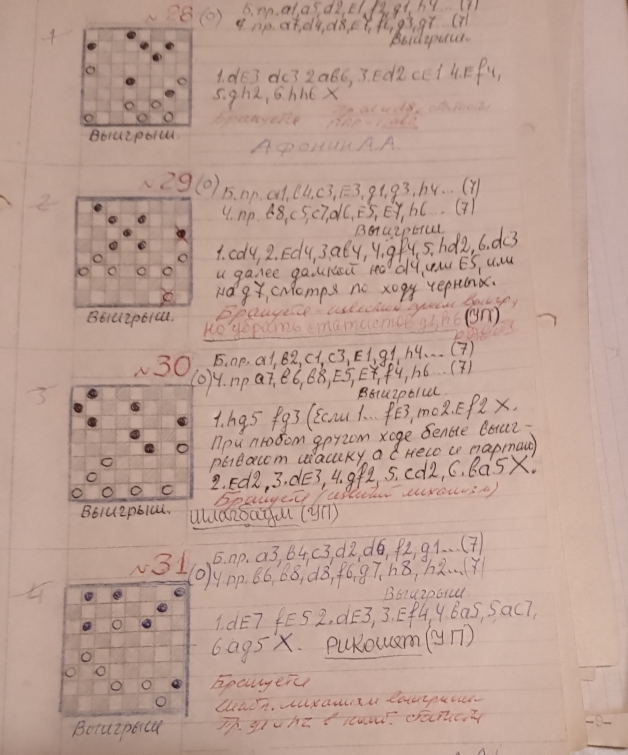 1
№28 (0) Б.пр. a1, a5, d2, E1, f2, g1, h4... (7)
Ч.пр. a7, d4, d8, E7, f6, g3, g7... (7)
Выигрыш.
1.dE3 dc3 2ab6, 3.Ed2 cE1 4.Ef4,
5.gh2, 6.hh6 X
Бракуется
Выигрыш.
Афонин А.А
2
№29(0) Б.пр. a1, b4, c3, E3, g1, g3, h4... (7)
Ч.пр. b8, c5, c7, d6, E5, E7, h6... (7)
Выигрыш
1.cd4, 2.Ed4, 3ab4, 4.gf4, 5.hd2, 6.dc3
и далее дамкой на d4, или E5, или
на g7, смотря по ходу черных.
Выигрыш.
Бракуется - известный прием выигр,
но убрать статистов g1, h6 (УП)
3
№30 Б.пр. a1, b2, c1, c3, E1, g1, h4... (7)
(0) Ч.пр a7, b6, b8, E5, E7, f4, h6... (7)
Выигрыш
1.hg5 fg3 (Если 1... fE3, то 2.Ef2 X.
При любом другом ходе белые выиг-
рывают шашку, а с нею и партию)
2.Ed2, 3.dE3, 4.gf2, 5.cd2, 6.ba5X.
Бракуется (механизм)
Выигрыш. Шлагбаум (УП)
4
№31 Б.пр. a3, b4, c3, d2, d6, f2, g1...(7)
(0) Ч.пр. b6, b8, d8, f6, g7, h8, h2...(7)
Выигрыш.
1.dE7 fE5 2.dE3, 3.Ef4, 4.ba5, 5ac7,
6ag5 X. Рикошет (УП)
Бракуется
Шабл. механизм выигрыша
Выигрыш
Пр. g1 и h2 в статисты